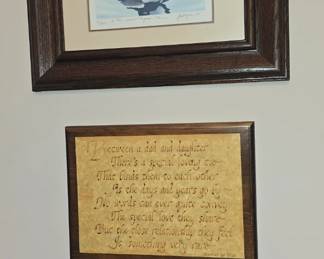 Between a dad and daughter
There's a special loving tie
That binds them to each other
As the days and years go by
No words can ever quite convey
The special love they share
But the close relationship they feel
Is something very rare